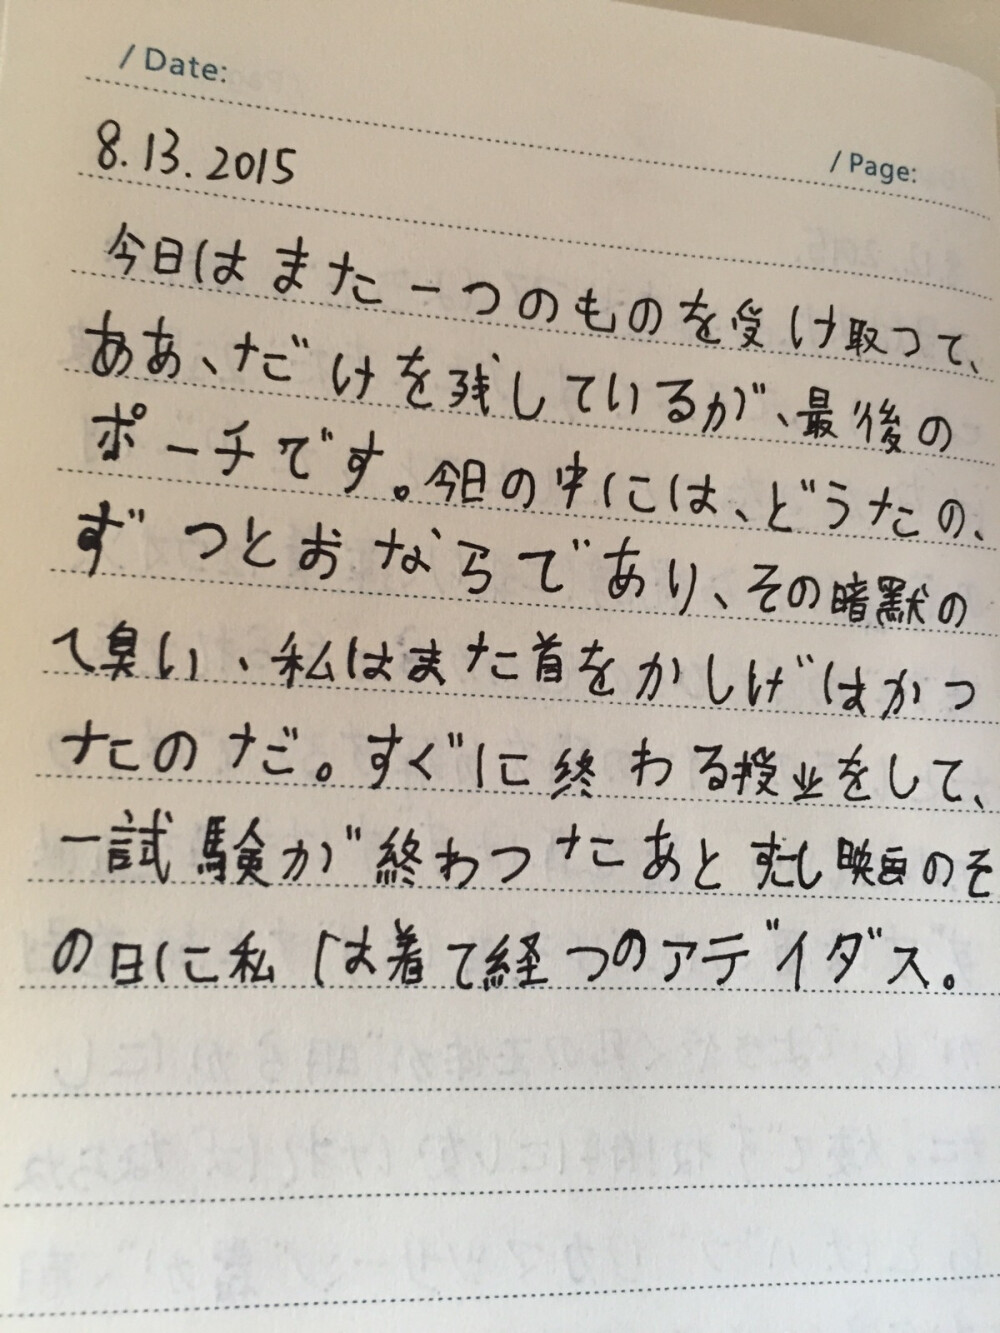 / Date:
/ Page:
8.13.2015
今日はまた一つのものを受け取つて、
ああ、だけを残しているが、最後の
ポーチです。今日の中には、どうたの、
ずつとおならであり、その暗黙の
て臭い、私はまた首をかしげはかつ
たのだ。すぐに終わる授业をして、
一試験が終わつたあとすこし映画のそ
の日に私は着て経つのアディダス。